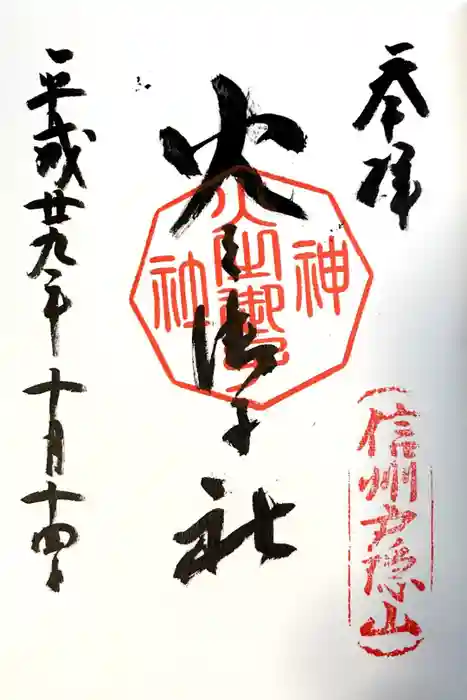 奉拝
信州戸隠山
火之御子社
神社
火之御子
平成廿九年十月十四日